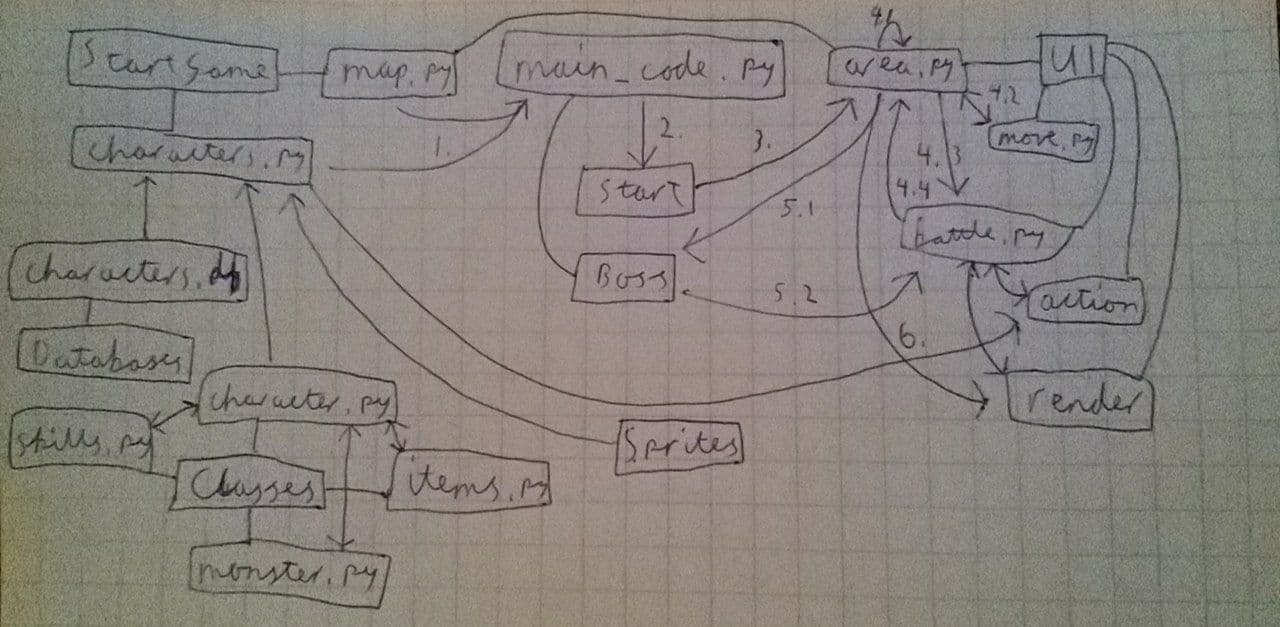 StartGame
map.py
main_code.py
4.
area.py
UI
4.2
move.py
characters.py
1.
2.
3.
4.3
4.4
Start
5.1
battle.py
characters.
Boss
5.2
action
Databases
6.
character.py
render
skills.py
Sprites
Classes
items.py
monster.py